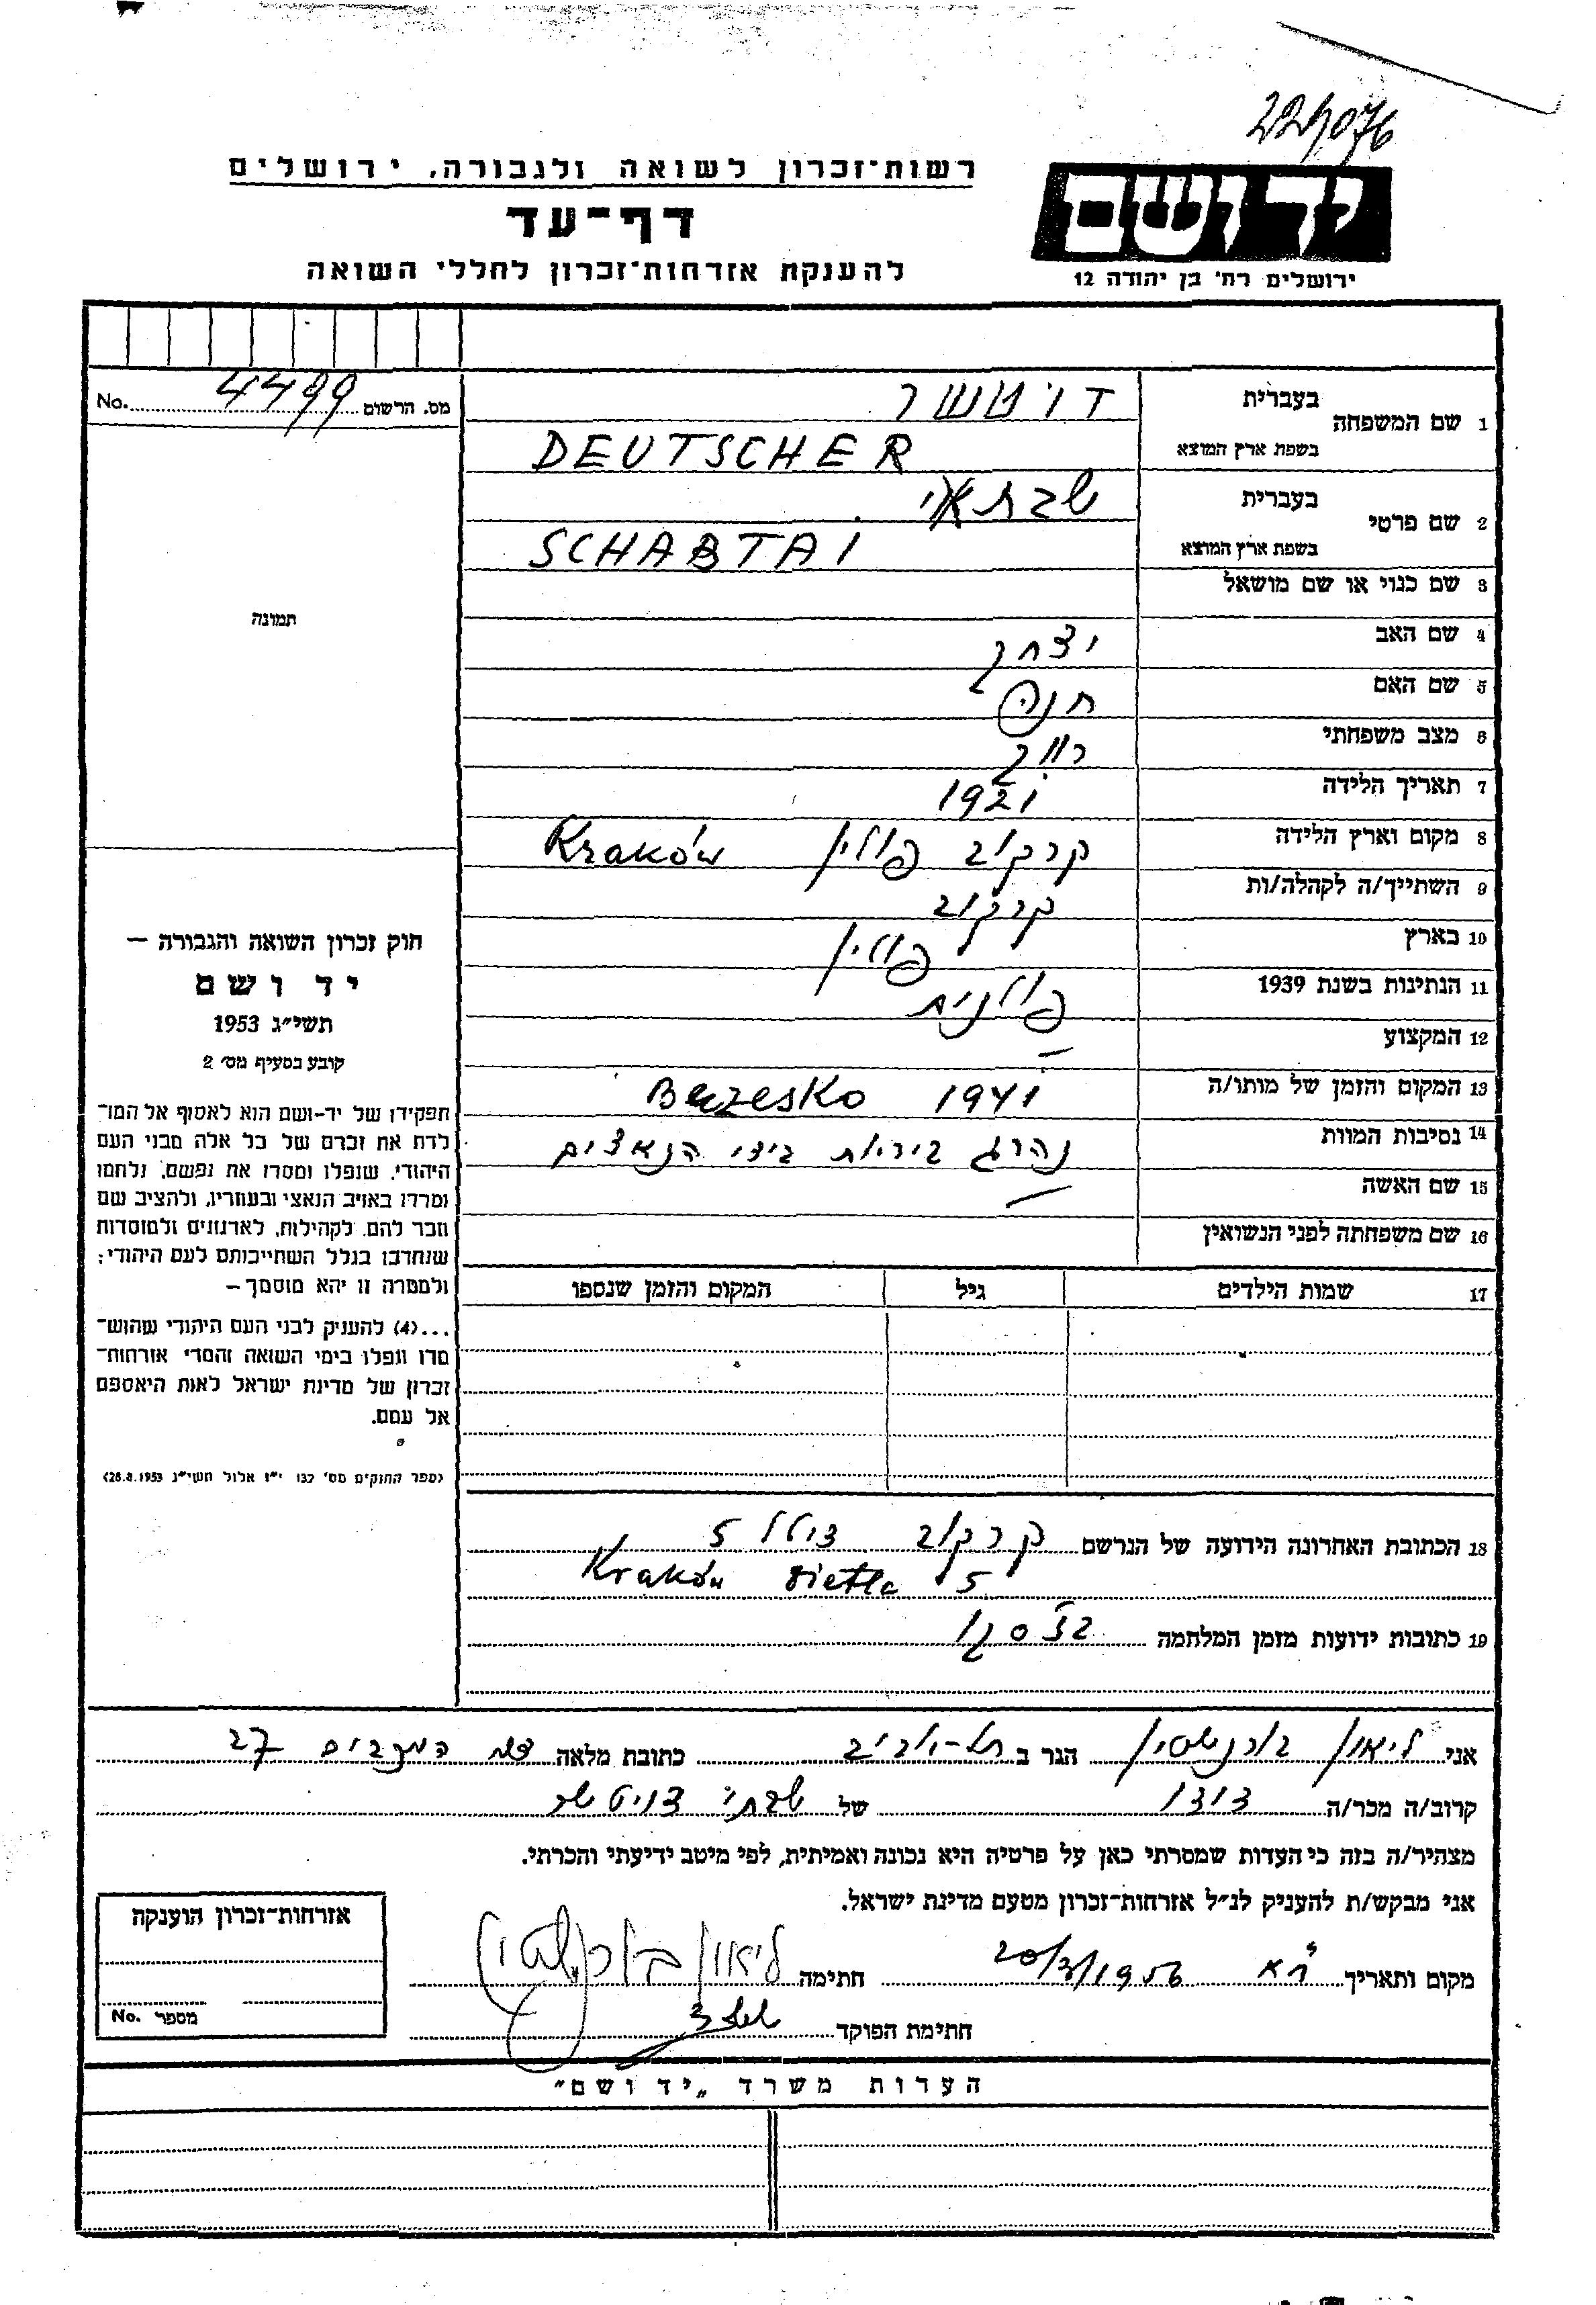 רשות־זכרון לשואה ולגבורה, ירושלים
דף־עד
להענקת אזרחות־זכרון לחללי השואה
יד ושם
ירושלים רח' בן יהודה 12
מס. הרשום 4499 No.
1 שם המשפחה בעברית דויטשר
בשפת ארץ המוצא DEUTSCHER
2 שם פרטי בעברית שבתאי
בשפת ארץ המוצא SCHABTAI
3 שם כנוי או שם מושאל
4 שם האב יצחק
5 שם האם חנה
6 מצב משפחתי רווק
7 תאריך הלידה 1921
8 מקום וארץ הלידה קרקוב פולין Kraków
9 השתייך/ה לקהלה/ות קרקוב
10 בארץ פולין
11 הנתינות בשנת 1939 פולנית
12 המקצוע —
13 המקום והזמן של מותו/ה 1941
14 נסיבות המוות נהרג ביריות בידי הנאצים
15 שם האשה —
16 שם משפחתה לפני הנשואין
17 שמות הילדים גיל המקום והזמן שנספו
תמונה
חוק זכרון השואה והגבורה —
יד ושם
תשי״ג 1953
קובע בסעיף מס׳ 2
תפקידו של יד-ושם הוא לאסוף אל המו־
לדת את זכרם של כל אלה מבני העם
היהודי, שנפלו ומסרו את נפשם, נלחמו
ומרדו באויב הנאצי ובעוזריו, ולהציב שם
וזכר להם, לקהילות, לארגונים ולמוסדות
שנחרבו בגלל השתייכותם לעם היהודי;
ולמטרה זו יהא מוסמך —
...(4) להעניק לבני העם היהודי שהוש־
מדו ונפלו בימי השואה והמרי אזרחות־
זכרון של מדינת ישראל לאות היאספם
אל עמם.
(ספר החוקים מס׳ 132 י״ז אלול תשי״ג 28.8.1953)
18 הכתובת האחרונה הידועה של הנרשם קרקוב 5
Kraków Dietla 5
19 כתובות ידועות מזמן המלחמה
אני ליאון בורנשטיין הגר ב תל-אביב כתובת מלאה המכבים 27
קרוב/ה מכר/ה דודו של שבתי דויטשר
מצהיר/ה בזה כי העדות שמסרתי כאן על פרטיה היא נכונה ואמיתית, לפי מיטב ידיעתי והכרתי.
אני מבקש/ת להעניק לנ״ל אזרחות־זכרון מטעם מדינת ישראל.
מקום ותאריך 1956 חתימה ליאון בורנשטיין
חתימת הפוקד
אזרחות־זכרון הוענקה
מספר No.
העדות משרד „יד ושם״